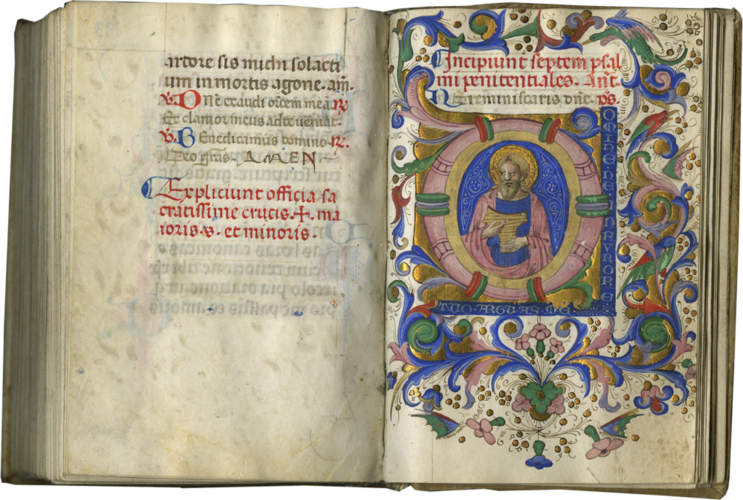 artore sis michi solacti
um in mortis agone. am̄.
℣. Dn̄e exaudi orōem meā ℟.
Et clamor meus ad te veniat.
℣. Benedicamus domino. ℟.
Deo gras. AMEN
Expliciunt officia sa
cratissime crucis. +. ma
ioris. s. et minoris.
Incipiunt septem psal
mi penitentiales. Ant̄.
Ne reminiscaris dn̄e. ps.
OMINE NE IN FVRORE
TVO ARGVAS ME